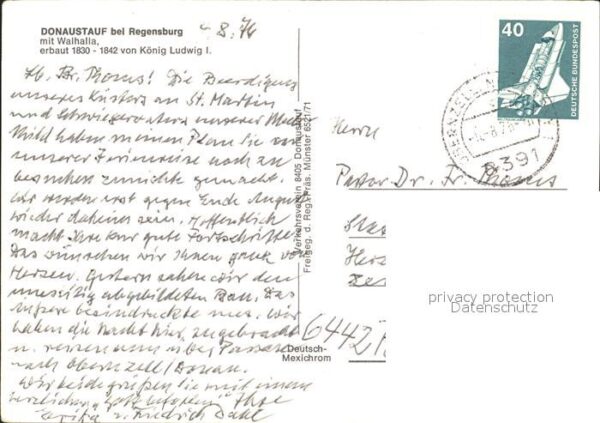 DONAUSTAUF bei Regensburg
mit Walhalla,
erbaut 1830 - 1842 von König Ludwig I.
4.8.76
Lb. Br. Thoms! Die Beerdigung
unseres Küsters an St. Martin
und Schwiegervaters unserer
haben meinen Plan Sie vor
unserer Ferienreise noch zu
besuchen zunichte gemacht.
Wir werden erst gegen Ende August
wieder daheim sein. Hoffentlich
macht Ihre Kur gute Fortschritte
Das wünschen wir Ihnen ganz von
Herzen. Gestern sahen wir den
umseitig abgebildeten Bau. Das
äußere beeindruckte uns. Wir
haben die Nacht hier zugebracht
u. reisen nun über Passau
nach Obernzell/Donau.
Wir beide grüßen Sie mit einem
herzlichen „Gott befohlen“ Ihre
u. Friedrich Dahl
Verkehrsverein 8405 Donaustauf
Freigeg. d. Reg. Präs. Münster 6521/71
Deutsch-
Mexichrom
40
DEUTSCHE BUNDESPOST
8391
Herrn
Pastor Dr. Fr. Thoms
6442
privacy protection
Datenschutz